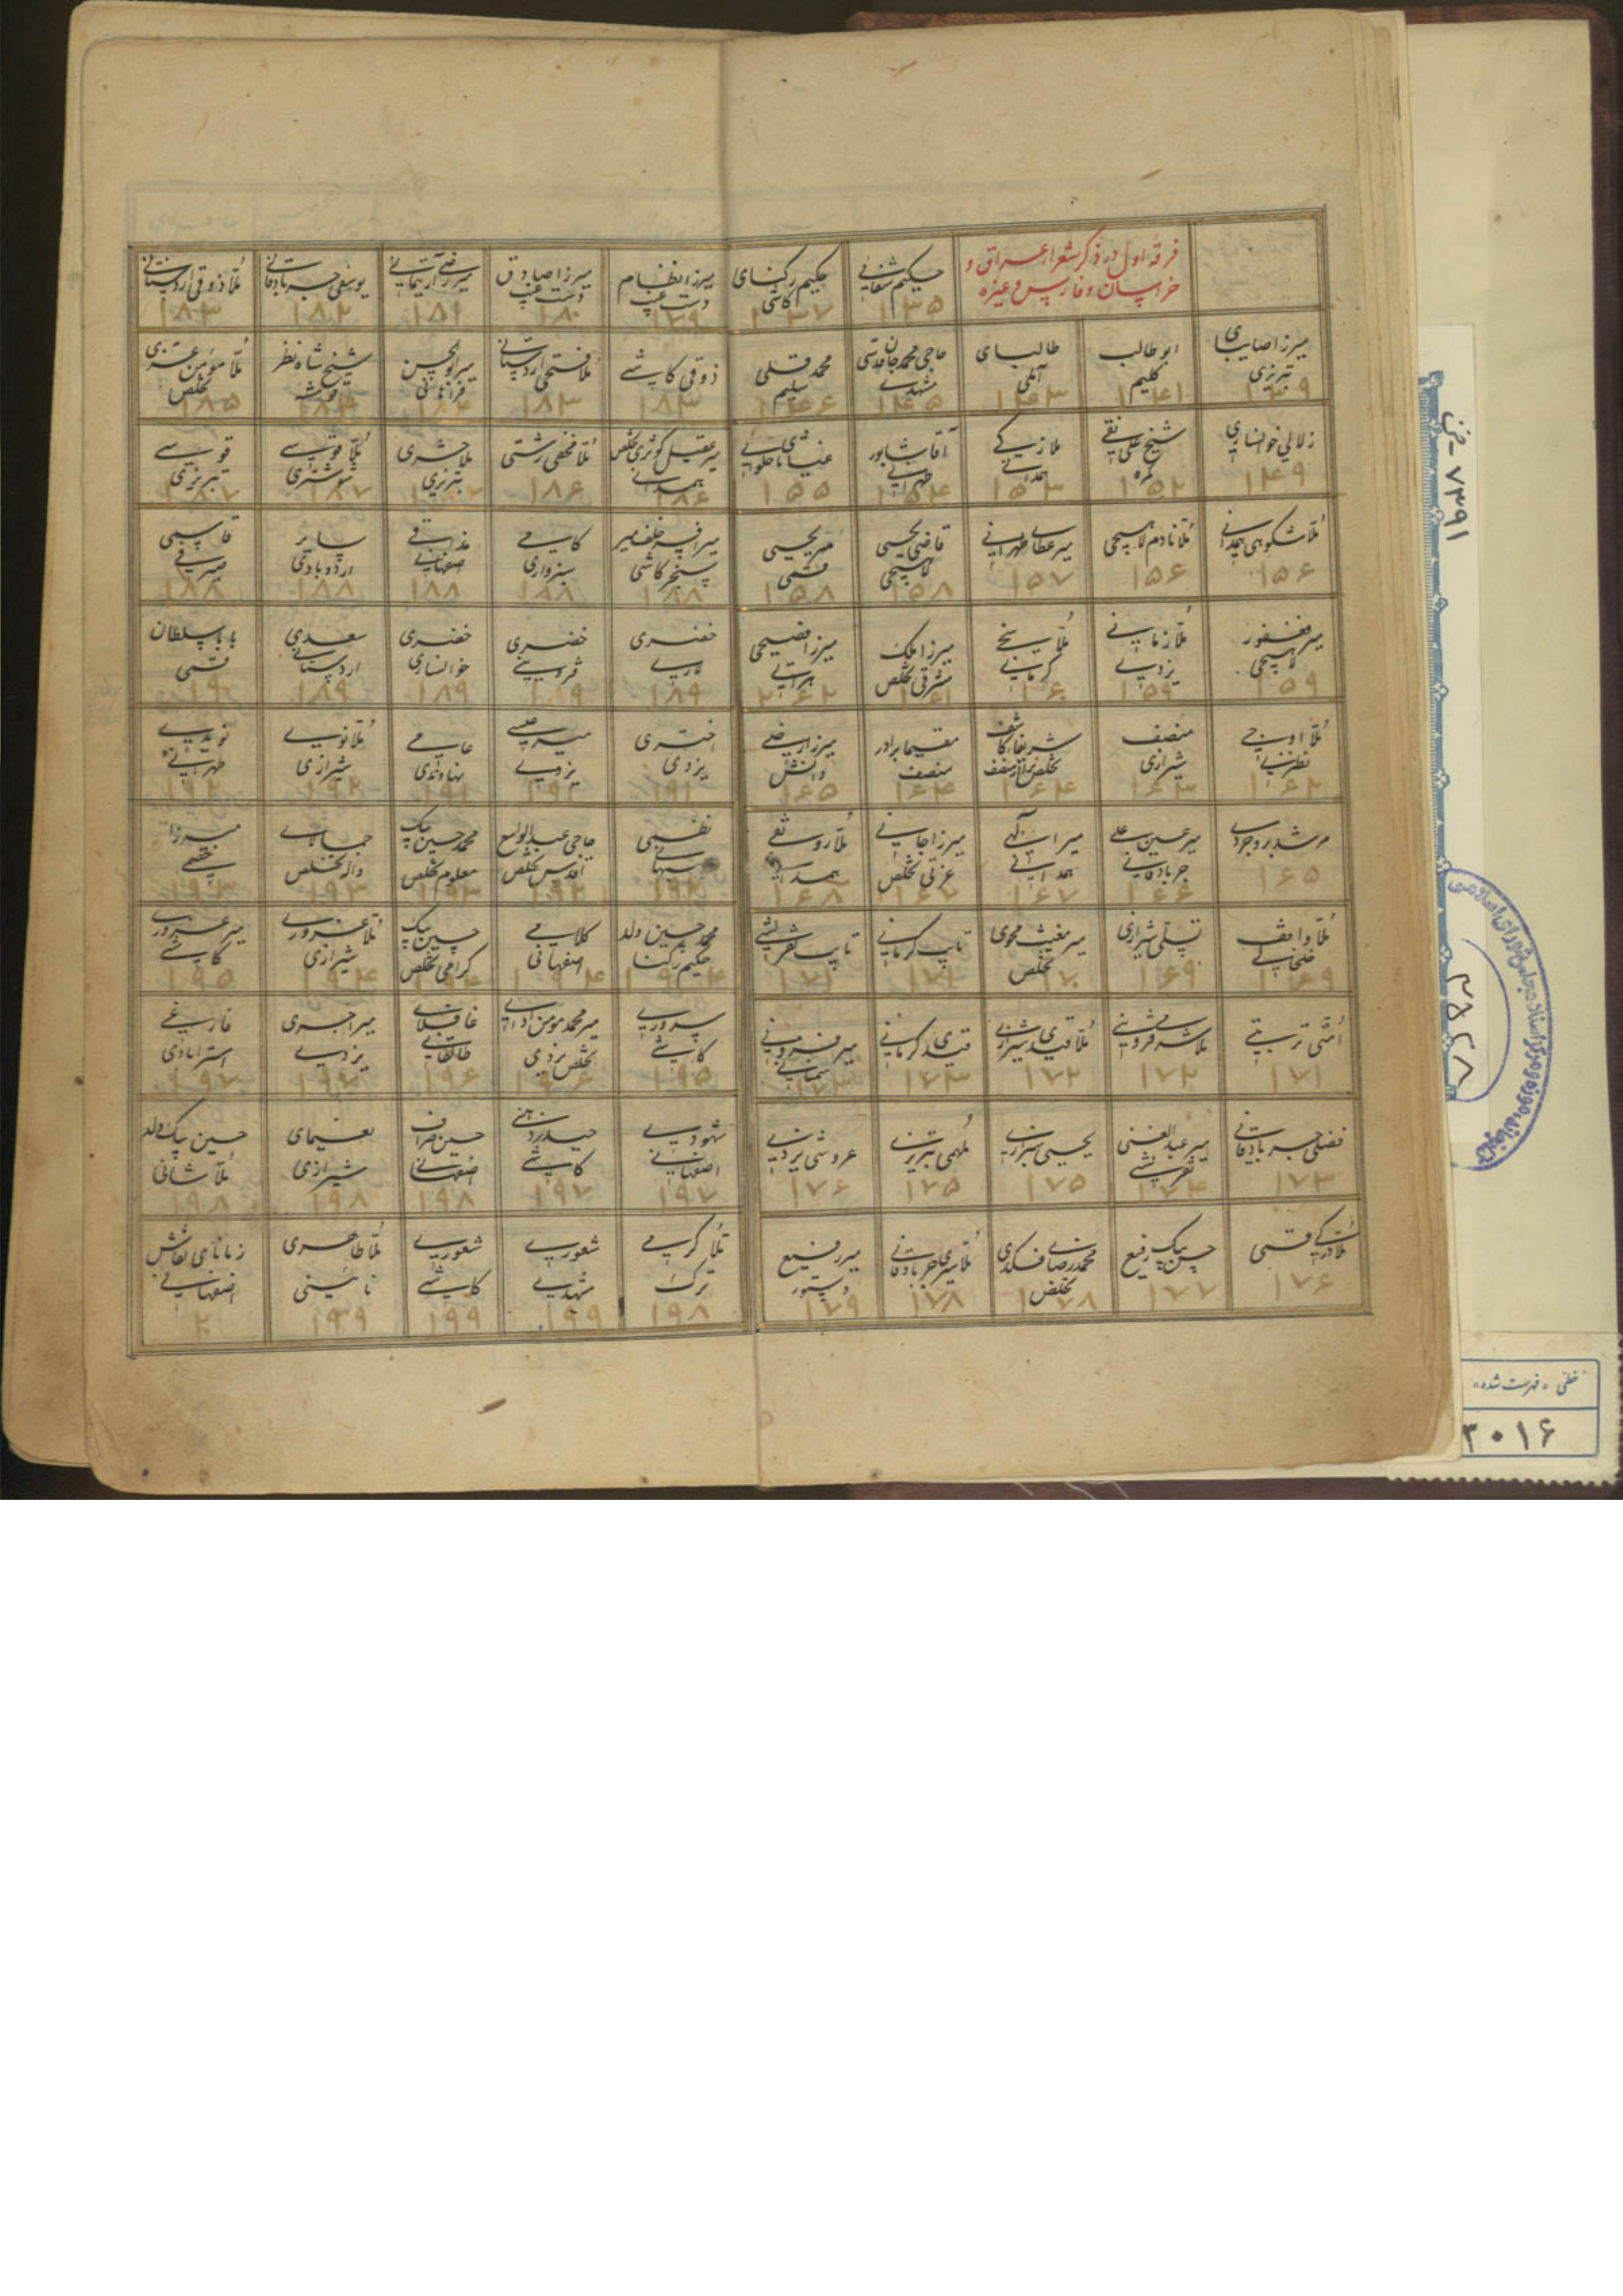 فرقهٔ اول در ذکر شعرا عراق و
خراسان و فارس و غیره
حکیم شفائی
۱۳۵
حکیم رکنای
کاشی
۱۳۷
میرزا صایبای
تبریزی
۱۳۹
ابو طالب
کلیم
۱۴۱
طالبای
آملی
۱۴۳
حاجی محمد جان قدسی
مشهدی
۱۴۵
محمد قلی
سلیم
۱۴۶
زلالی خوانساری
۱۴۹
شیخ علی نقی
کمره
۱۵۲
ملا زکی
همدانی
۱۵۳
آقا شاپور
طهرانی
۱۵۴
غیاثای حلوایی
۱۵۵
ملا شکوهی همدانی
۱۵۶
ملا نادم لاهیجی
۱۵۶
میر عطای طهرانی
۱۵۷
قاضی یحیی
لاهیجی
۱۵۸
میر یحیی
قمی
۱۵۸
میر فغفور
لاهیجی
۱۵۹
ملا زمانی
یزدی
۱۵۹
ملا
کرمانی
۱۶۰
میرزا ملک
مشرقی تخلص
۱۶۱
میرزا فصیحی
هراتی
۱۶۲
ملا اوجی
نطنزی
۱۶۲
منصف
شیرازی
۱۶۳
شریفا کاشف
۱۶۴
مقیما برادر
منصف
۱۶۴
میرزا رضی
دانش
۱۶۵
مرشد بروجردی
۱۶۵
میر حسین علی
جربادقانی
۱۶۶
میر الهی
همدانی
۱۶۷
میرزا جانی
عزتی تخلص
۱۶۷
ملا رونقی
همدانی
۱۶۸
ملا واقف
خلخالی
۱۶۹
تسلی شیرازی
۱۶۹
میر مغیث محوی
تخلص
۱۷۰
تایب کرمانی
۱۷۱
تایب تفرشی
۱۷۱
امتی تربتی
۱۷۱
ملا قزوینی
۱۷۲
ملا قیدی شیرازی
۱۷۲
قیدی کرمانی
۱۷۳
میر
سمنانی
۱۷۳
فضلی جربادقانی
۱۷۳
میر عبد الغنی
تفرشی
۱۷۴
یحیی شیرازی
۱۷۵
ملهمی تبریزی
۱۷۵
عروشی یزدی
۱۷۶
ملا درکی قمی
۱۷۶
حسن بیک رفیع
۱۷۷
محمد رضا فکری
تخلص
۱۷۸
ملا سیری جربادقانی
۱۷۸
میر رفیع
دستور
۱۷۹
میرزا نظام
دست غیب
۱۷۹
میرزا صادق
دست غیب
۱۸۰
میر رضی آرتیمانی
۱۸۱
یوسفی جربادقانی
۱۸۲
ملا ذوقی اردستانی
۱۸۳
ذوقی کاشی
۱۸۳
ملا فتحی اردستانی
۱۸۳
میر ابوالحسن
فراهانی
۱۸۴
شیخ شاه نظر
قمشه
۱۸۴
ملا مؤمن عزی
تخلص
۱۸۵
میر عقیل کوثری تخلص
همدانی
۱۸۶
ملا مخفی رشتی
۱۸۶
ملا حشری
تبریزی
ملا قوسی
شوشتری
۱۸۷
قوسی
تبریزی
۱۸۷
خلف میر
سنجر کاشی
۱۸۸
کامی
سبزواری
۱۸۸
مذاقی
اصفهانی
۱۸۸
سایر
اردوبادی
۱۸۸
قاسمی
صیرفی
۱۸۸
خضری
لاری
۱۸۹
خضری
قزوینی
۱۸۹
خضری
خوانساری
۱۸۹
سعدی
اردستانی
۱۸۹
بابا سلطان
قمی
۱۹۰
اختری
یزدی
۱۹۱
میر عیسی
یزدی
۱۹۱
عامی
نهاوندی
۱۹۱
ملا نویی
شیرازی
۱۹۲
نویدی
طهرانی
۱۹۲
نظمی
۱۹۲
حاجی عبد الواسع
اقدس تخلص
۱۹۲
محمد حسین بیک
معلوم تخلص
۱۹۳
واله تخلص
۱۹۳
میرزا
۱۹۳
محمد حسین ولد
حکیم رکنا
۱۹۴
کلامی
اصفهانی
۱۹۴
حسین بیک
کرامی تخلص
۱۹۴
ملا غروری
شیرازی
۱۹۴
میر غروری
کاشی
۱۹۵
سروری
کاشی
۱۹۵
میر محمد مؤمن ادایی
تخلص یزدی
۱۹۶
غافلای
طالقانی
۱۹۶
میر اجری
یزدی
۱۹۷
فارغی
استرابادی
۱۹۷
شهودی
اصفهانی
۱۹۷
حیدر ذهنی
کاشی
۱۹۷
حسین صراف
اصفهانی
۱۹۸
نعیمای
شیرازی
۱۹۸
حسین بیک ولد
ملا شانی
۱۹۸
ملا کرمی
ترک
۱۹۸
شعوری
مشهدی
۱۹۹
شعوری
کاشی
۱۹۹
ملا طاهری
نائینی
۱۹۹
زمانای نقاش
اصفهانی
۲۰
۷۳۹۱ - خ
۳۸۲۸
خطی «فهرست شده»
۳۰۱۶